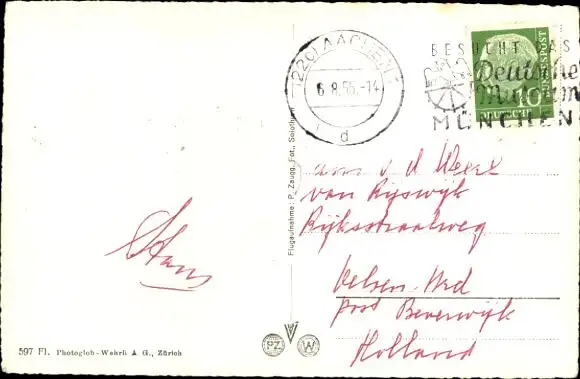 (22c) AACHEN 1
6.8.55.-14
d
BESUCHT DAS
Deutsche
Museum
MÜNCHEN
BUNDESPOST
DEUTSCHE
10
Flugaufnahme: P. Zaugg, Fot., Solothurn
v. d.
van Rijswijk
Rijksstraatweg
Velsen-Nrd
post Beverwijk
Holland
Hans
PZ
W
597 Fl. Photoglob-Wehrli A G., Zürich